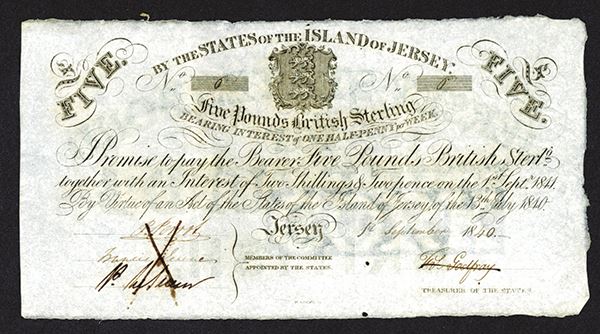 BY THE STATES OF THE ISLAND OF JERSEY.
FIVE. FIVE.
No. 0 No. 0
Five Pounds British Sterling
BEARING INTEREST of ONE HALF-PENNY per WEEK.
I Promise to pay the Bearer Five Pounds British Sterlg.
together with an Interest of Two Shillings & Twopence on the 1st Septr. 1841.
By Virtue of an Act of the States of the Island of Jersey, of the 13th July 1840.
Jersey 1st September 1840.
MEMBERS OF THE COMMITTEE
APPOINTED BY THE STATES.
Godfray
TREASURER OF THE STATES.